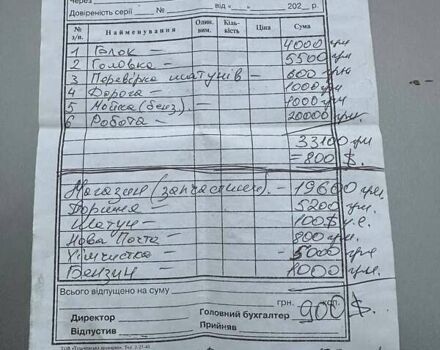 Через
Довіреність серії № від « » 202_ р.
№ з/п. Найменування Один. вим. Кіль-кість Ціна Сума
1 Блок — 4000 грн
2 Головка — 5500 грн
3 Перевірка шатунів — 600 грн
4 Дорога — 1000 грн
5 Мойка (бенз.) — 1000 грн
6 Робота — 20000 грн
33100 грн
= 800 $.
Магазин (запчастини). — 19600 грн.
Поршня — 5200 грн.
Шатун — 100 $ у.е.
Нова Почта — 800 грн.
Хімчистка — 5000 грн
Бензин — 1000 грн.
Всього відпущено на суму
грн. коп.
900 $.
Директор Головний бухгалтер
Відпустив Прийняв